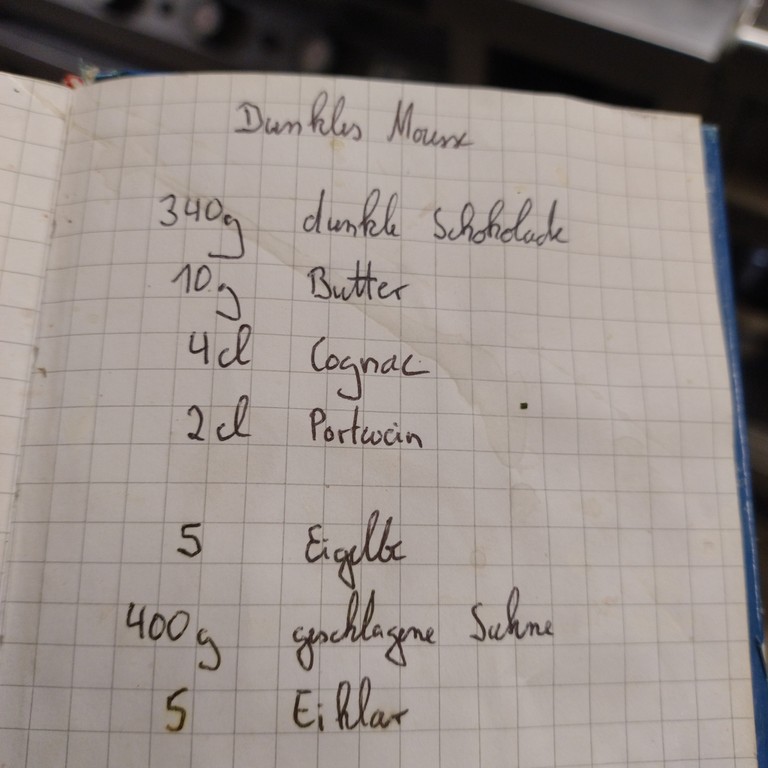 Dunkles Mousse
340g dunkle Schokolade
10g Butter
4cl Cognac
2cl Portwein
5 Eigelbe
400g geschlagene Sahne
5 Eiklar